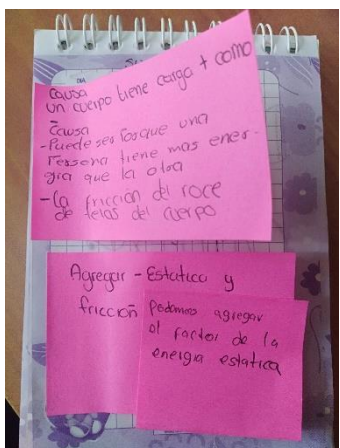 causa
un cuerpo tiene carga + como
-
causa
- Puede ser Porque una
Persona tiene mas ener-
gia que la otra
- La fricción del roce
de telas del cuerpo
Agregar - Estatica y
fricción
Podemos agregar
el factor de la
energia estatica